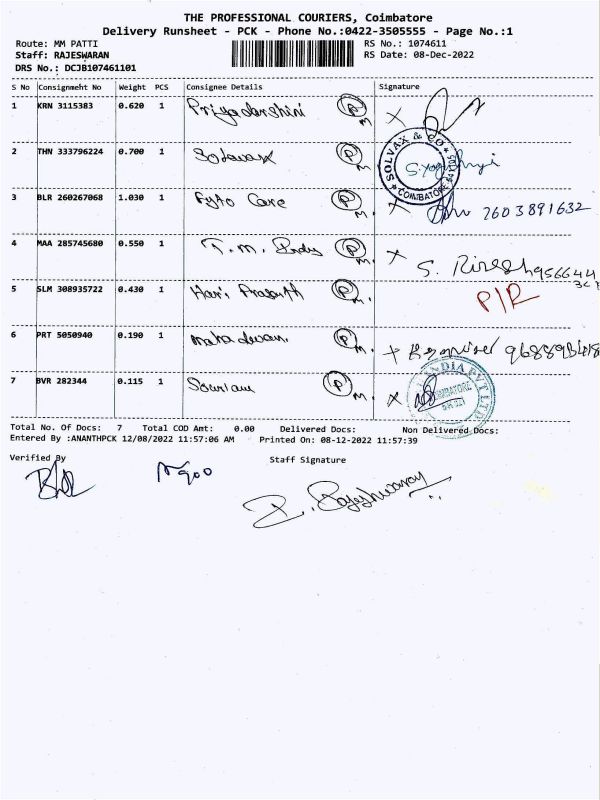 THE PROFESSIONAL COURIERS, Coimbatore
Delivery Runsheet - PCK - Phone No.:0422-3505555 - Page No.:1
Route: MM PATTI RS No.: 1074611
Staff: RAJESWARAN RS Date: 08-Dec-2022
DRS No.: DCJB107461101
S No Consignment No Weight PCS Consignee Details Signature
1 KRN 3115383 0.620 1 Priyadarshini P M X
2 THN 333796224 0.700 1 P M SOLVAX & CO COIMBATORE
3 BLR 260267068 1.030 1 Fyto Care P M. X 7603891632
4 MAA 285745680 0.550 1 T.M. P M X S.
5 SLM 308935722 0.430 1 Hari Prasath P M. P/R
6 PRT 5050940 0.190 1 P M.
7 BVR 282344 0.115 1 P M. X INDIA PVT LTD
Total No. Of Docs: 7 Total COD Amt: 0.00 Delivered Docs: Non Delivered Docs:
Entered By :ANANTHPCK 12/08/2022 11:57:06 AM Printed On: 08-12-2022 11:57:39
Verified By Staff Signature